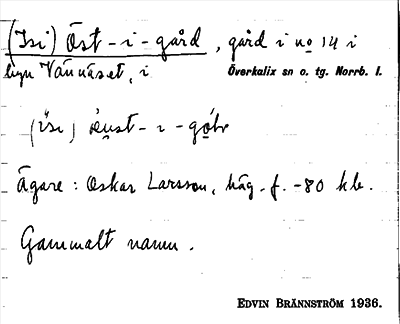 (Isi) Öst-i-gård, gård i no 14 i
byn Vännäset, i Överkalix sn o. tg. Norrb. l.
Ägare: Oskar Larsson, häg. f. -80 klx.
Gammalt namn.
EDVIN BRÄNNSTRÖM 1936.